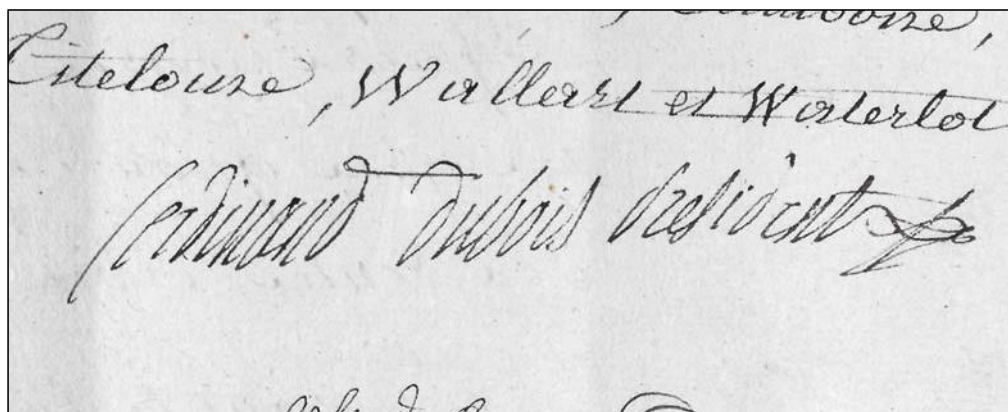 Citelouse, Wallart et Waterlot
ferdinand dubois president